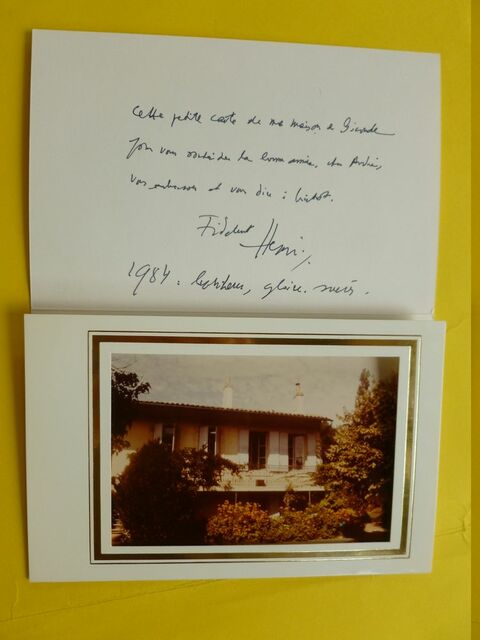 Cette petite carte de ma maison de Gironde
pour vous souhaiter la bonne année, cher André,
vous embrasser et vous dire : bientôt.
Fidèlement Henri
1984 : bonheur, gloire. succès.